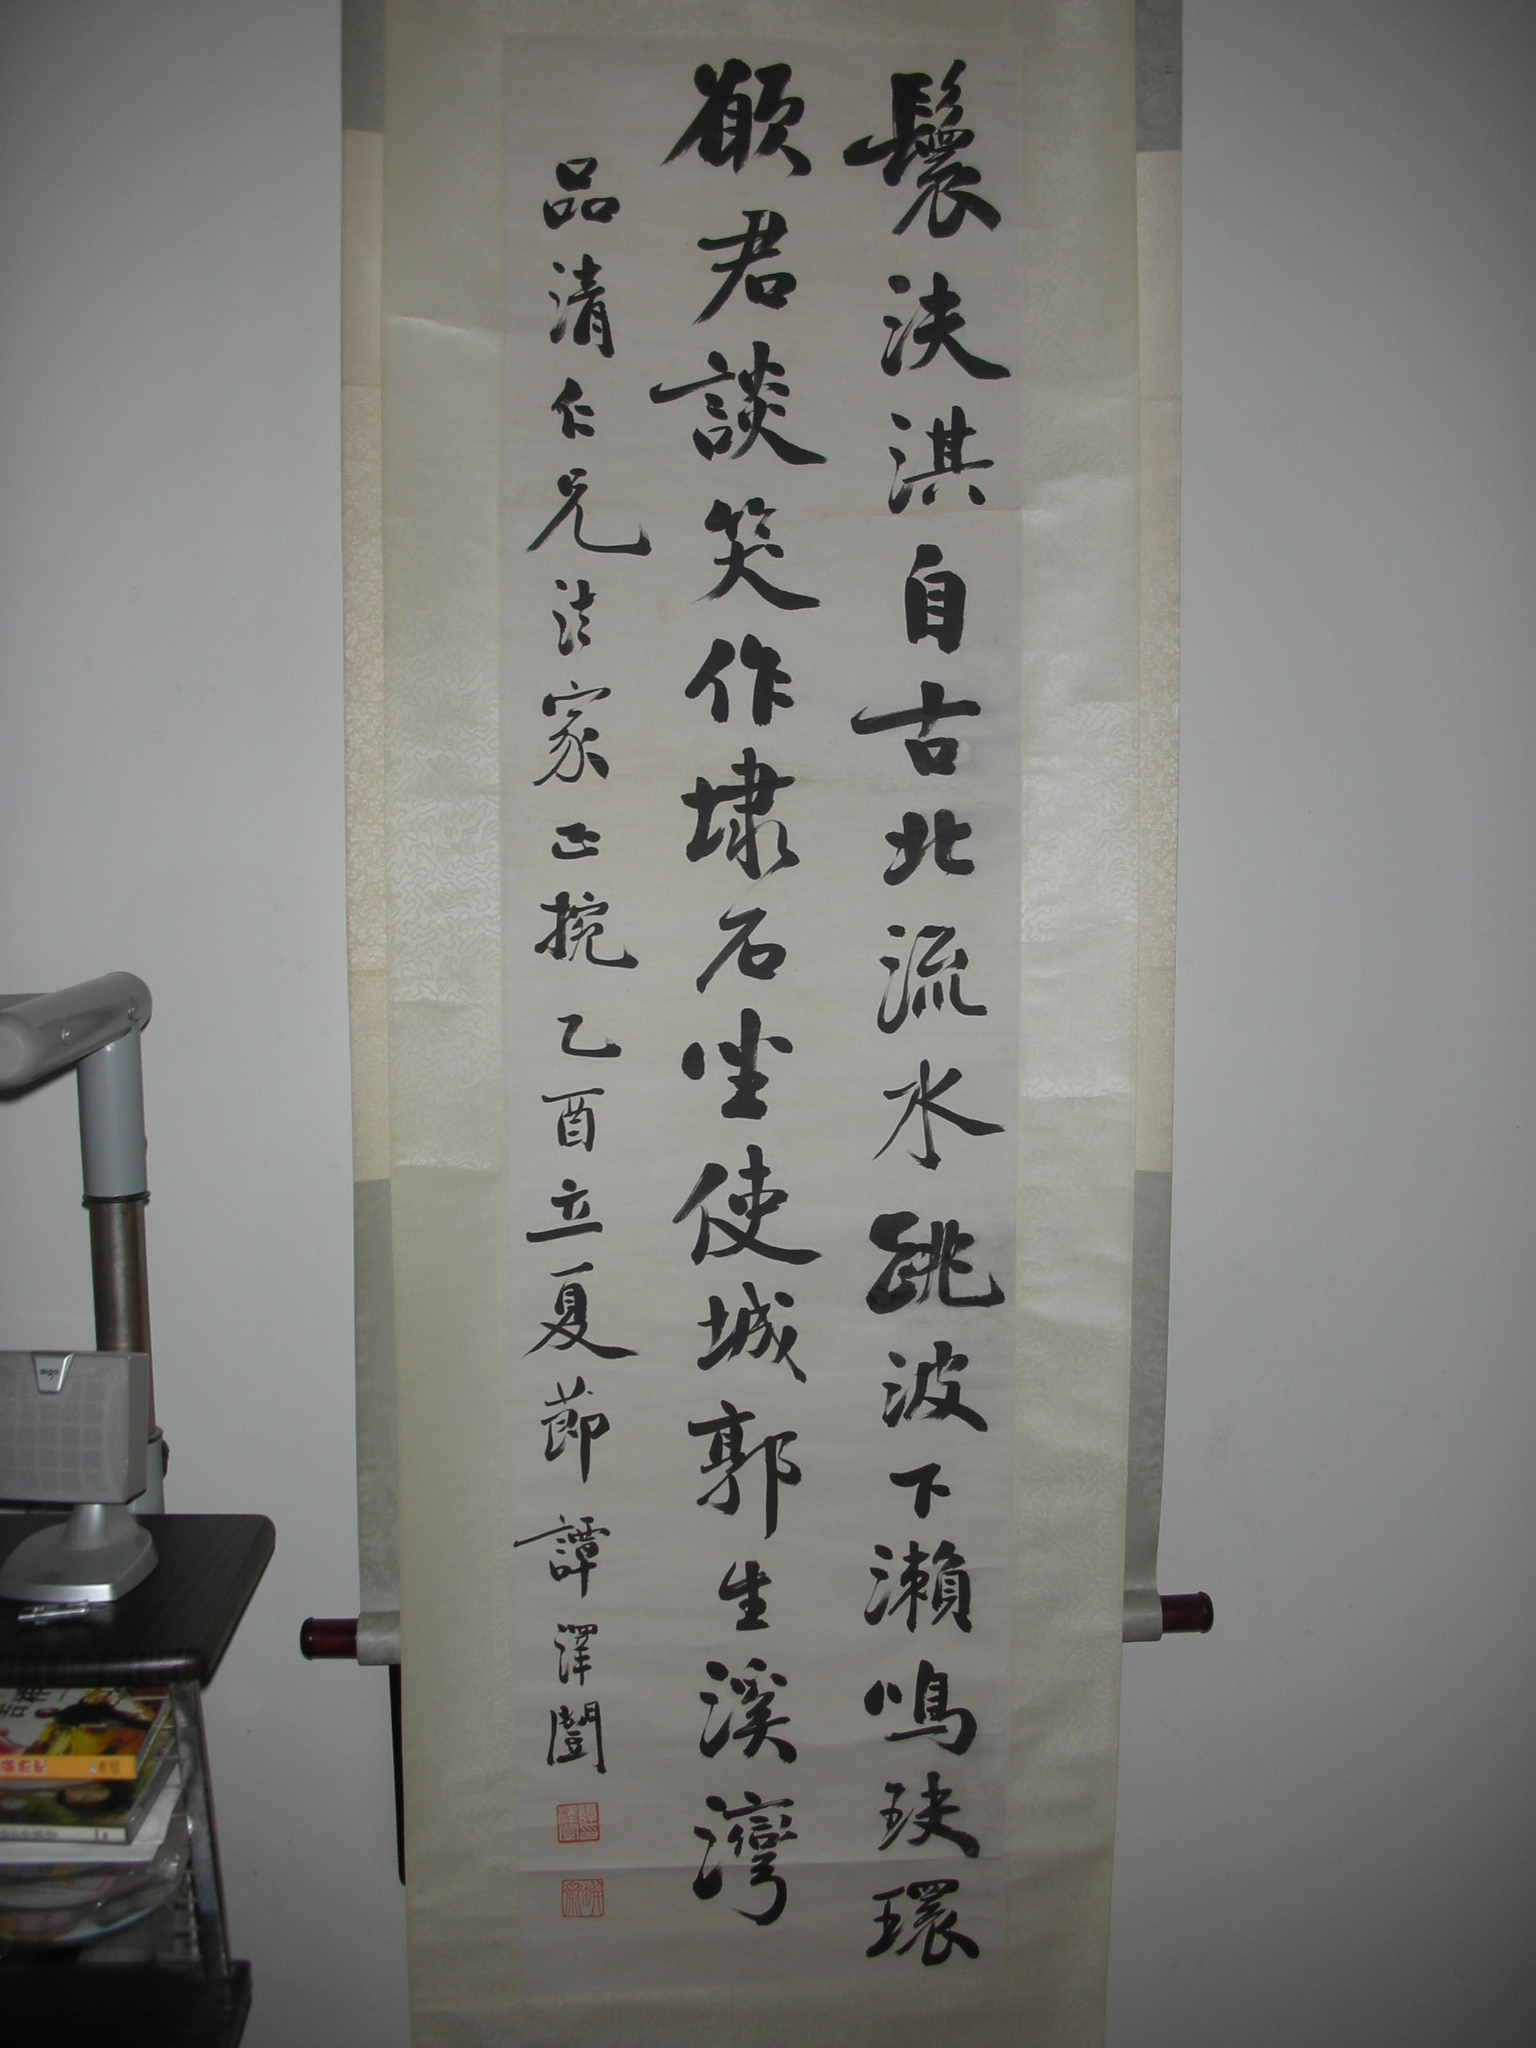 鬟泱淇自古北流水跳波下瀨鳴玦環
願君談笑作埭石坐使城郭生溪灣
品清仁兄法家正挽乙酉立夏節譚澤闓